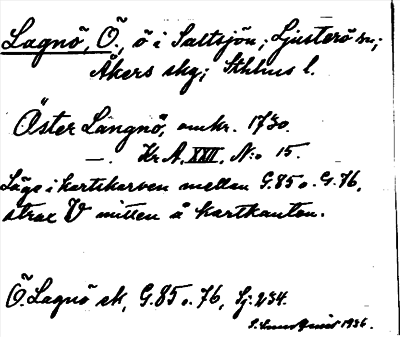 Lagnö, Ö., ö i Saltsjön; Ljusterö sn;
Åkers skg; Sthlms l.
Öster Långnö, omkr. 1730.
—. Kr A, XXII, N:o 15.
Läge i kartskarven mellan G.85 o. G.76,
strax V mitten å kartkanten.
Ö. Lagnö sk, G.85 o. 76, Sj: 234.
1936.